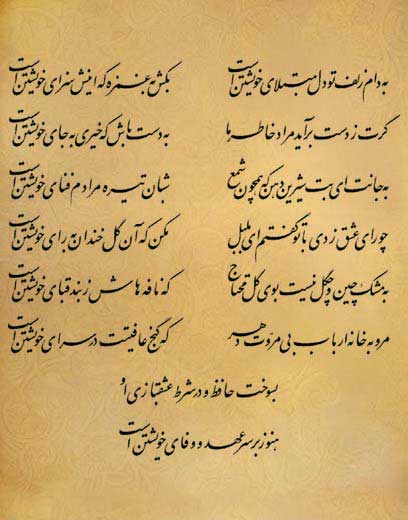 به دام زلف تو دل مبتلای خویشتن است
بکش به غمزه که اینش سزای خویشتن است
گرت ز دست برآید مراد خاطر ما
به دست باش که خیری به جای خویشتن است
به جانت ای بت شیرین دهن که همچون شمع
شبان تیره مرادم فنای خویشتن است
چو رای عشق زدی با تو گفتم ای بلبل
مکن که آن گل خندان به رای خویشتن است
به مشک چین و چگل نیست بوی گل محتاج
که نافه هاش ز بند قبای خویشتن است
مرو به خانه ارباب بی مروت دهر
که گنج عافیتت در سرای خویشتن است
بسوخت حافظ و در شرط عشقبازی او
هنوز بر سر عهد و وفای خویشتن است